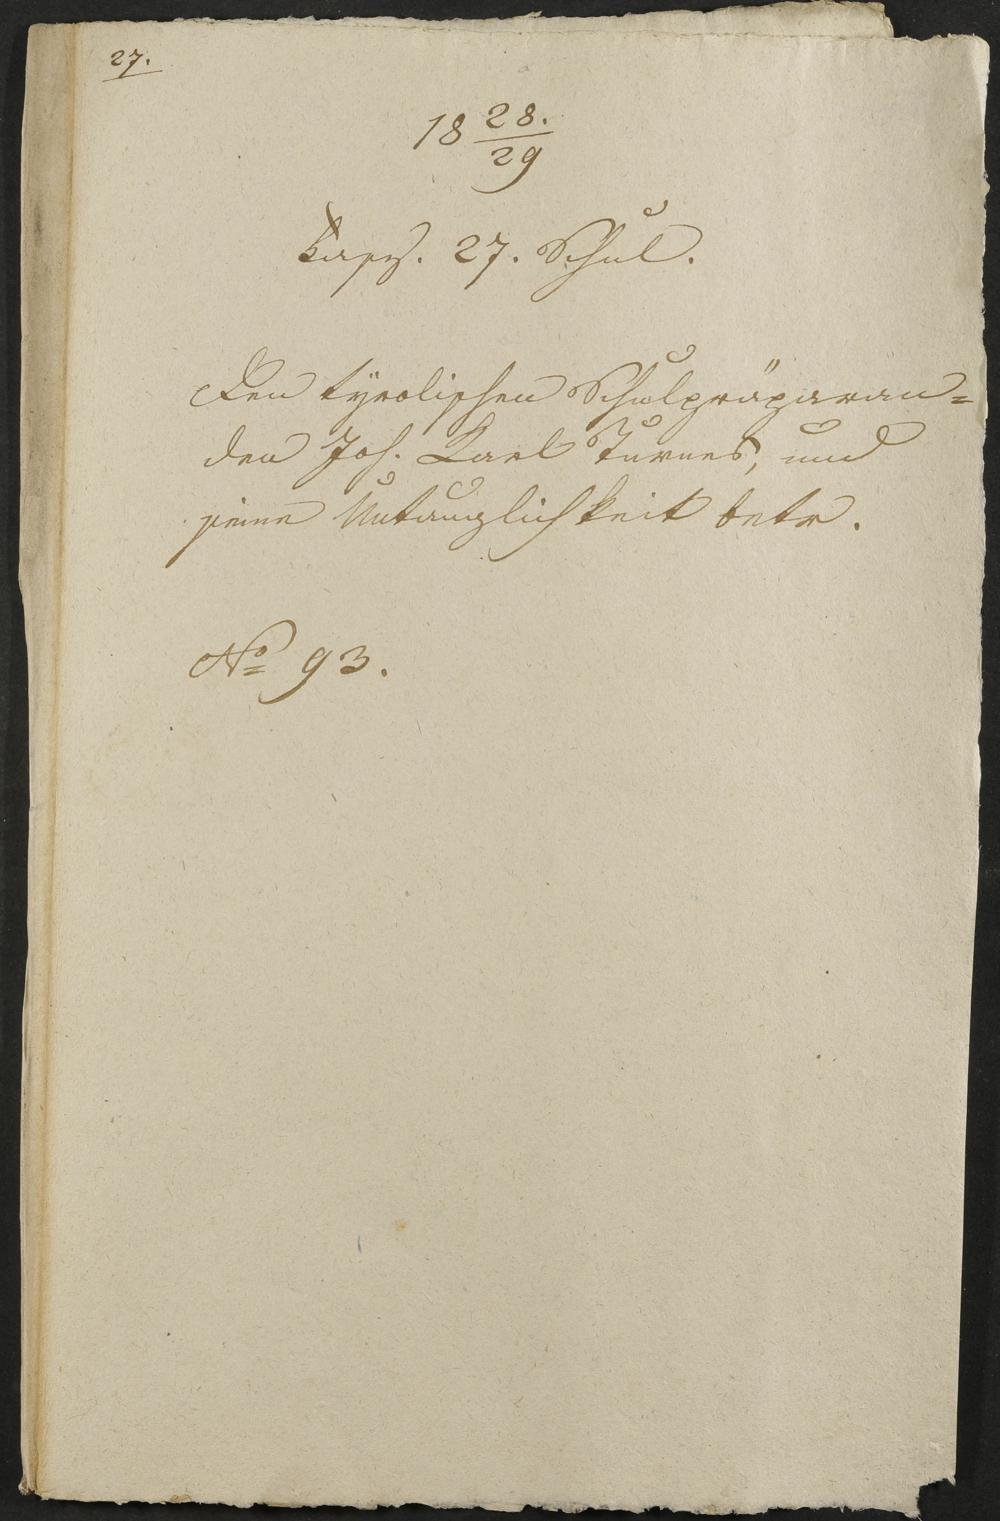 27.
18 28./29
Kaps. 27. Schul.
Den tÿrolischen Schulpräparan=
den Joh. Karl Turnes, und
seine Untauglichkeit betr.
No 93.